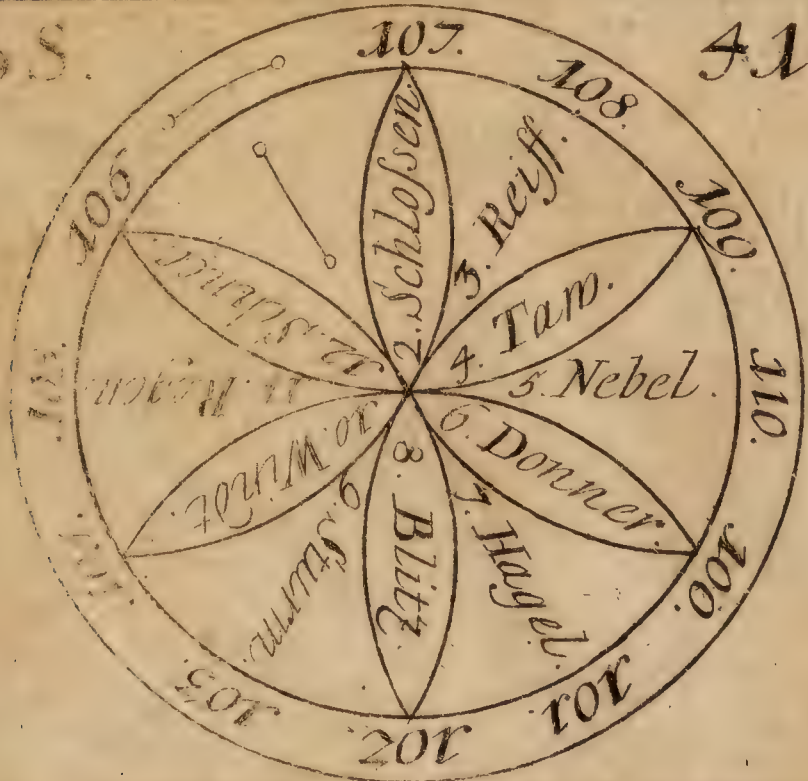 S. 41
107.
108.
109.
110.
100.
101.
102.
103.
106
2. Schloſsen.
3. Reiff.
4. Taw.
5. Nebel.
6. Donner.
7. Hagel.
8. Blitz.
9. Sturm.
10. Windt.
11. Regen.
12. Schnee.